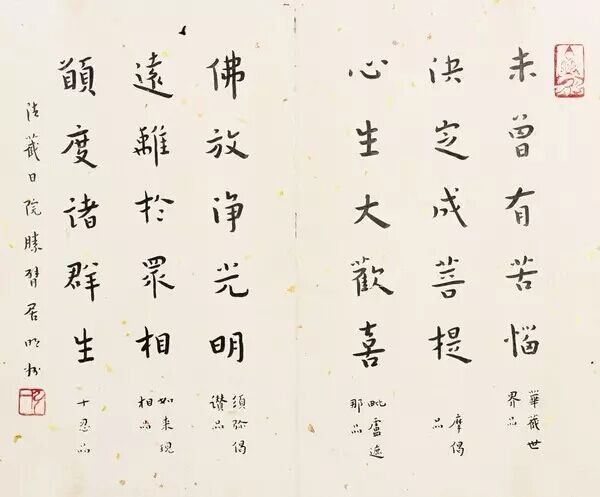 未曾有苦惱
華藏世
界品
決定成菩提
摩偈
品
心生大歡喜
毗盧遮
那品
佛放淨光明
須弥偈
讚品
遠離於眾相
如來現
相品
願度諸群生
十忍品
藏日院勝臂居